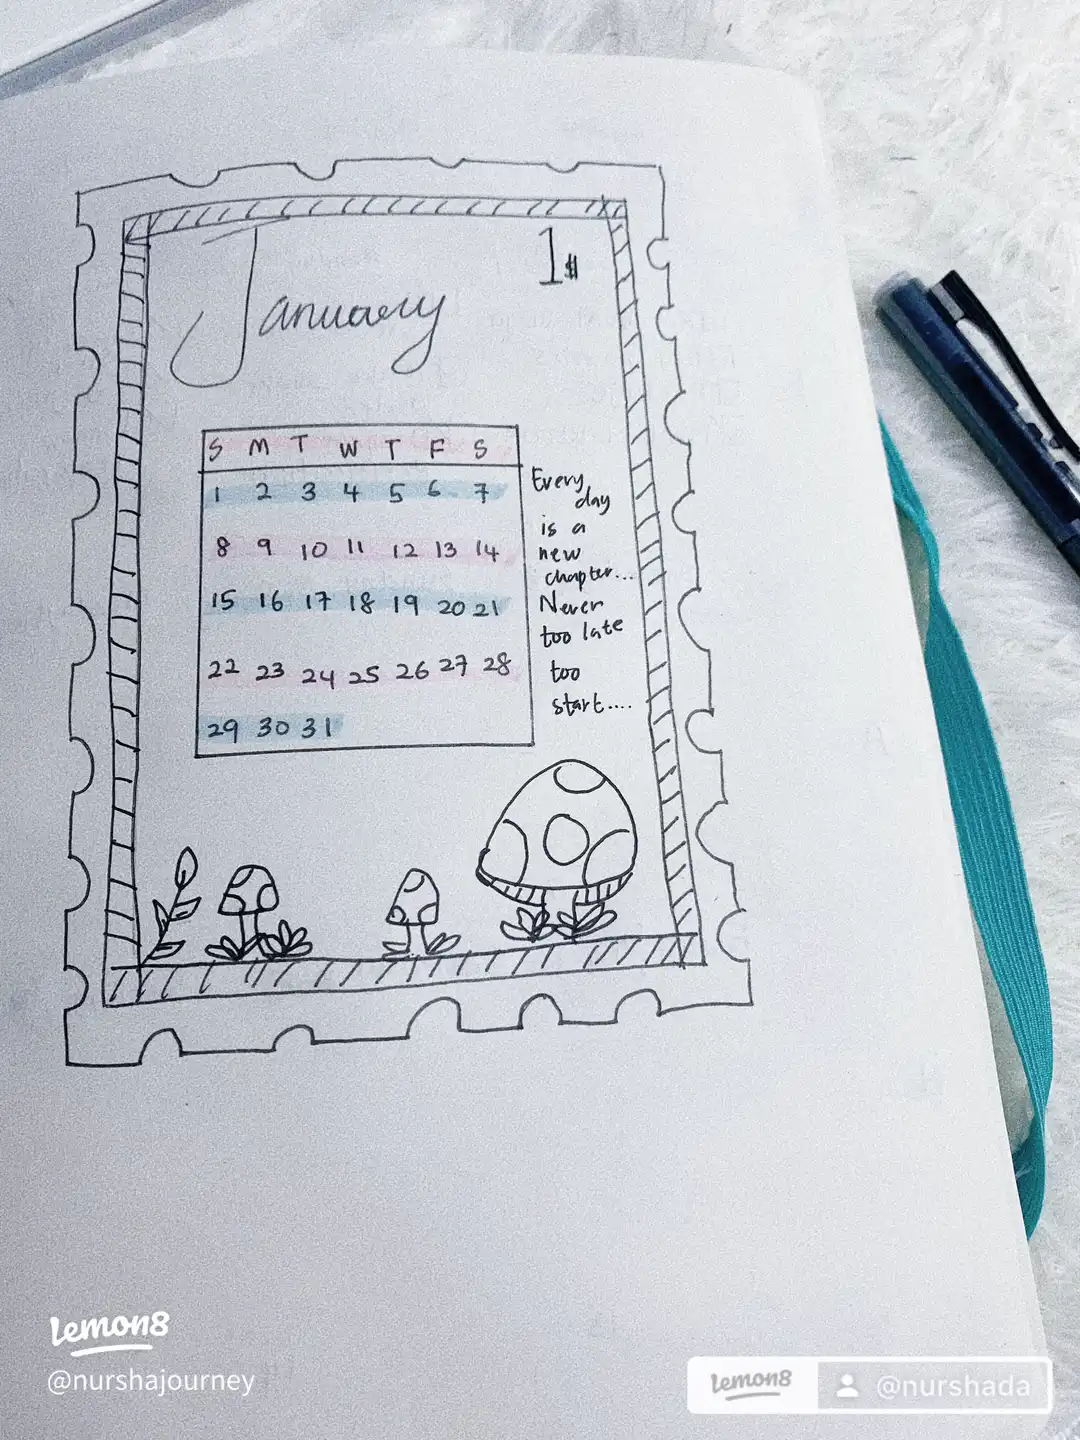 January
1$
S M T W T F S
1 2 3 4 5 6 7
8 9 10 11 12 13 14
15 16 17 18 19 20 21
22 23 24 25 26 27 28
29 30 31
Every
day
is a
new
chapter...
Never
too late
too
start....
lemon8
@nurshajourney
lemon8 @nurshada